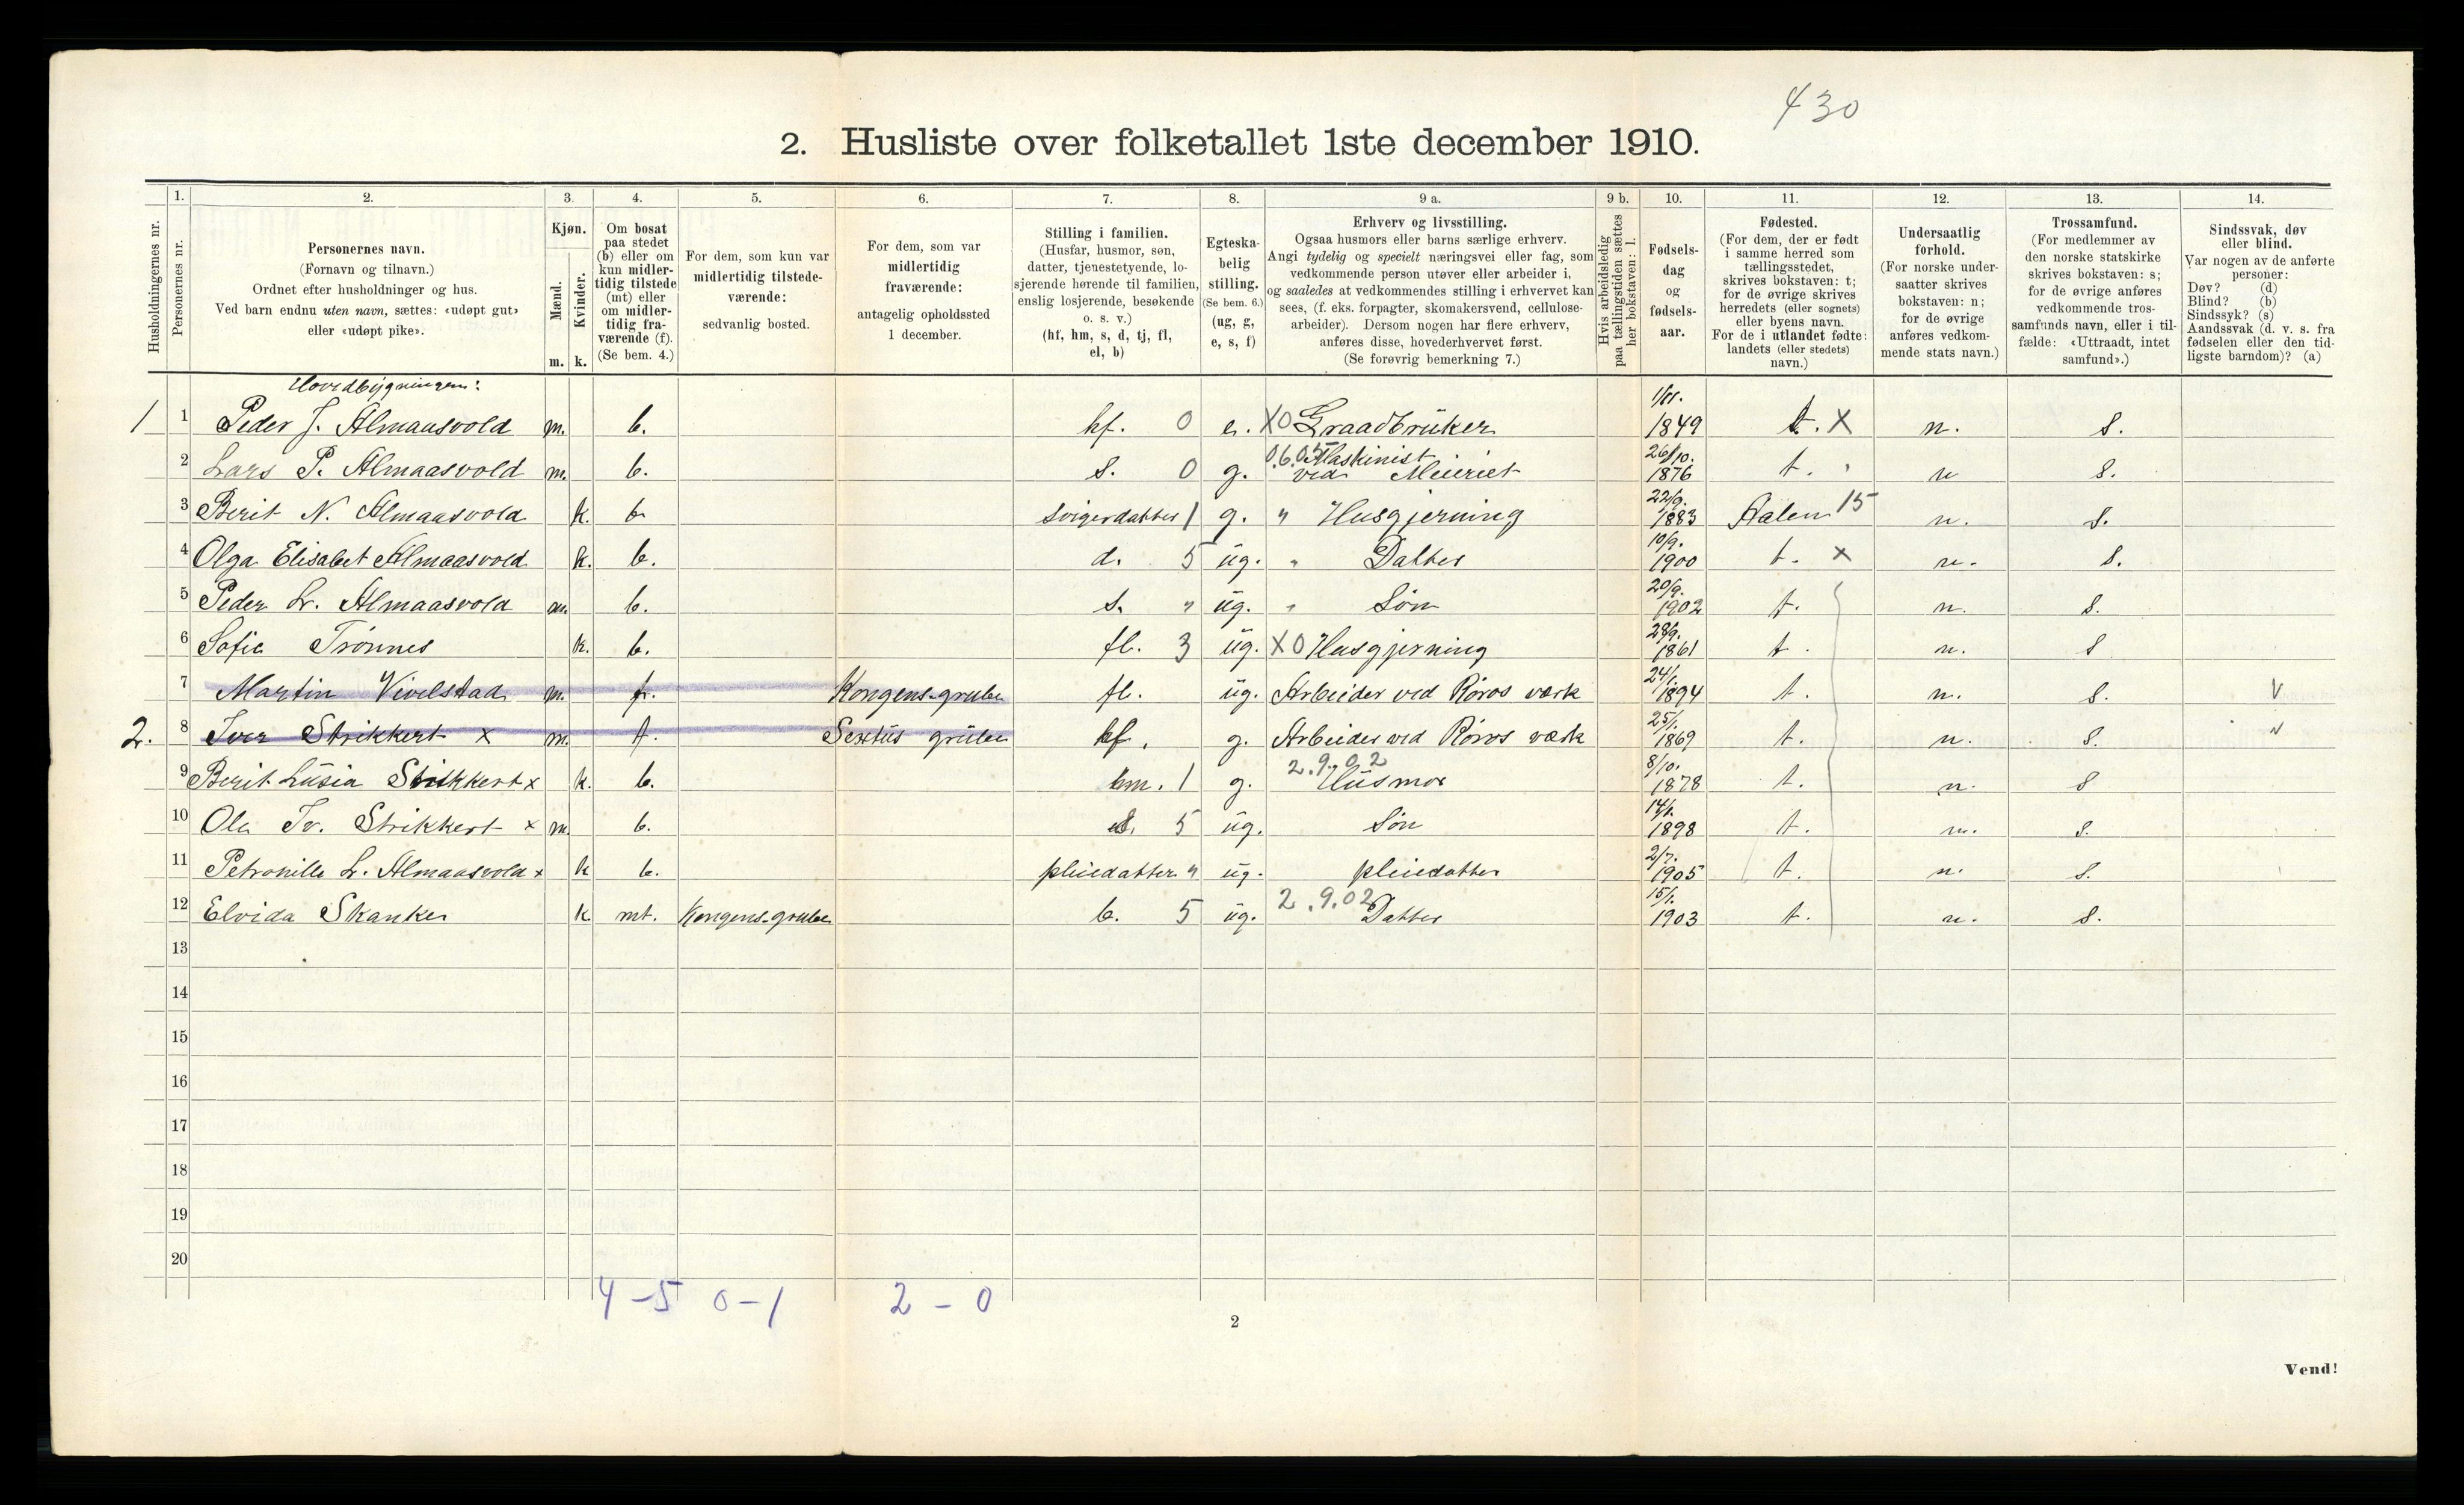 430
2. Husliste over folketallet 1ste december 1910.
Husholdningernes nr.
1.
Personernes nr.
2.
Personernes navn.
(Fornavn og tilnavn.)
Ordnet efter husholdninger og hus.
Ved barn endnu uten navn, sættes: «udøpt gut»
eller «udøpt pike».
3.
Kjøn.
Mænd.
m.
Kvinder.
k.
4.
Om bosat
paa stedet
(b) eller om
kun midler-
tidig tilstede
(mt) eller
om midler-
tidig fra-
værende (f).
(Se bem. 4.)
5.
For dem, som kun var
midlertidig tilstede-
værende:
sedvanlig bosted.
6.
For dem, som var
midlertidig
fraværende:
antagelig opholdssted
1 december.
7.
Stilling i familien.
(Husfar, husmor, søn,
datter, tjenestetyende, lo-
sjerende hørende til familien,
enslig losjerende, besøkende
o. s. v.)
(hf, hm, s, d, tj, fl,
el, b)
8.
Egteska-
belig
stilling.
(Se bem. 6.)
(ug, g,
e, s, f)
9 a.
Erhverv og livsstilling.
Ogsaa husmors eller barns særlige erhverv.
Angi tydelig og specielt næringsvei eller fag, som
vedkommende person utøver eller arbeider i,
og saaledes at vedkommendes stilling i erhvervet kan
sees, (f. eks. forpagter, skomakersvend, cellulose-
arbeider). Dersom nogen har flere erhverv,
anføres disse, hovederhvervet først.
(Se forøvrig bemerkning 7.)
9 b.
Hvis arbeidsledig
paa tællingstiden sættes
her bokstaven: l.
10.
Fødsels-
dag
og
fødsels-
aar.
11.
Fødested.
(For dem, der er født
i samme herred som
tællingsstedet,
skrives bokstaven: t;
for de øvrige skrives
herredets (eller sognets)
eller byens navn.
For de i utlandet fødte:
landets (eller stedets)
navn.)
12.
Undersaatlig
forhold.
(For norske under-
saatter skrives
bokstaven: n;
for de øvrige
anføres vedkom-
mende stats navn.)
13.
Trossamfund.
(For medlemmer av
den norske statskirke
skrives bokstaven: s;
for de øvrige anføres
vedkommende tros-
samfunds navn, eller i til-
fælde: «Uttraadt, intet
samfund».)
14.
Sindssvak, døv
eller blind.
Var nogen av de anførte
personer:
Døv? (d)
Blind? (b)
Sindssyk? (s)
Aandssvak (d. v. s. fra
fødselen eller den tid-
ligste barndom)? (a)
Hovedbygningen:
1 1 Peder J. Almaasvold m. b. hf. 0 e. X0 Graadbrüker 1/11. 1849 t. X n. s.
2 Lars P. Almaasvold m. b. s. 0 g. 0.6.05 Maskinist ved Meieriet 26/10. 1876 t. n s.
3 Berit N. Almaasvold k. b svigerdatter 1 g. " Husgjerning 22/9. 1883 Aalen 15 n. s.
4 Olga Elisabet Almaasvold k. b. d. 5 üg. " Datter 10/9. 1900 t. x n. s.
5 Peder L. Almaasvold m. b. s. " üg. " Søn 20/9. 1902 t. n. s.
6 Sofie Trønnes k. b. fl. 3 üg. X0 Husgjerning 28/9. 1861 t. n. s
7 Martin Vivelstad m. f. Kongens-grube fl. üg. Arbeider ved Røros værk 24/1. 1894 t. n. s. V
2. 8 Iver Strikkert x m. f. Sextus grübe hf. g. Arbeider ved Røros værk 25/1. 1869 t. n. s. v
9 Berit Lüsia Strikkert x k. b. hm. 1 g. 2.9.02 Hüsmor 8/10. 1878 t. n. s
10 Ole Iv. Strikkert x m. b. s. 5 üg. Søn 14/1. 1898 t. n. s.
11 Petronille L. Almaasvold x k b. pleiedatter " üg. pleiedatter 2/7. 1905 t. n. s.
12 Elvida Skanker k mt. Kongens-grube b. 5 üg. 2.9.02 Datter 15/1. 1903 t. n. s.
13
14
15
16
17
18
19
20
4 - 5 0 - 1 2 - 0
2
Vend!